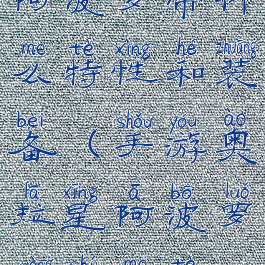 me tè xìng hé zhuāng
么特性和装
bèi shǒu yóu ào
备（手游奥
lā xīng ā bō luó
拉星阿波罗